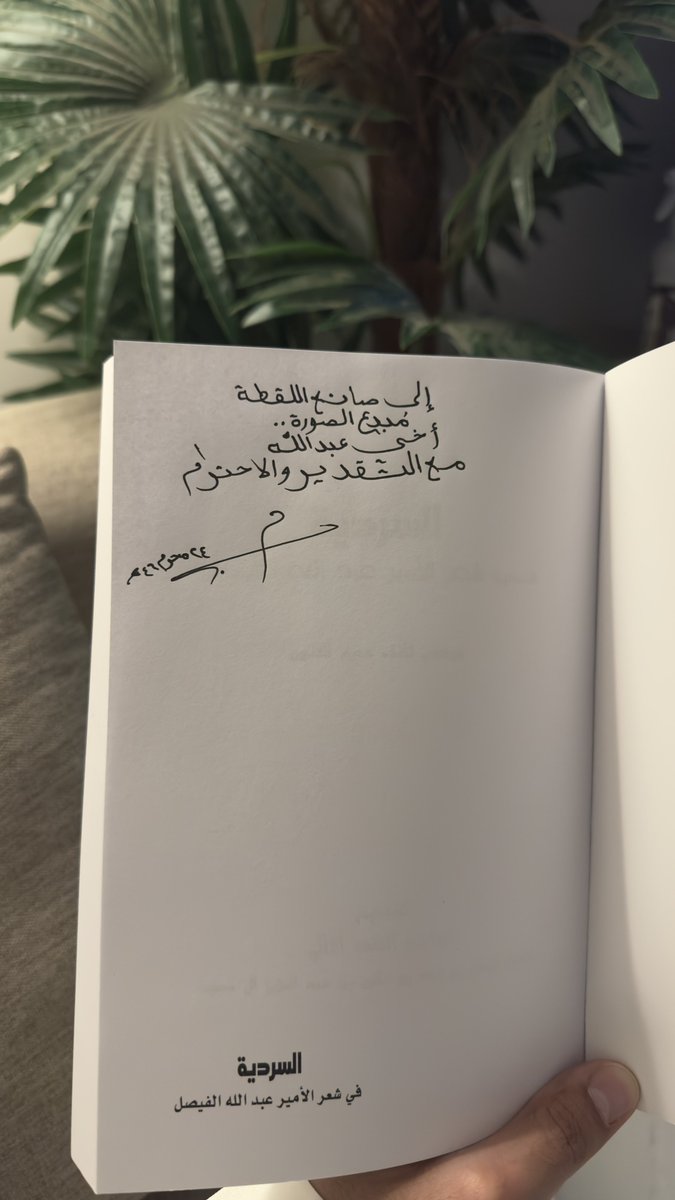 إلى صانع اللقطة
مُبدع الصورة..
أخي عبدالله
مع التقدير والاحترام
٢٤ محرم ٤٦ هـ
السردية
في شعر الأمير عبد الله الفيصل